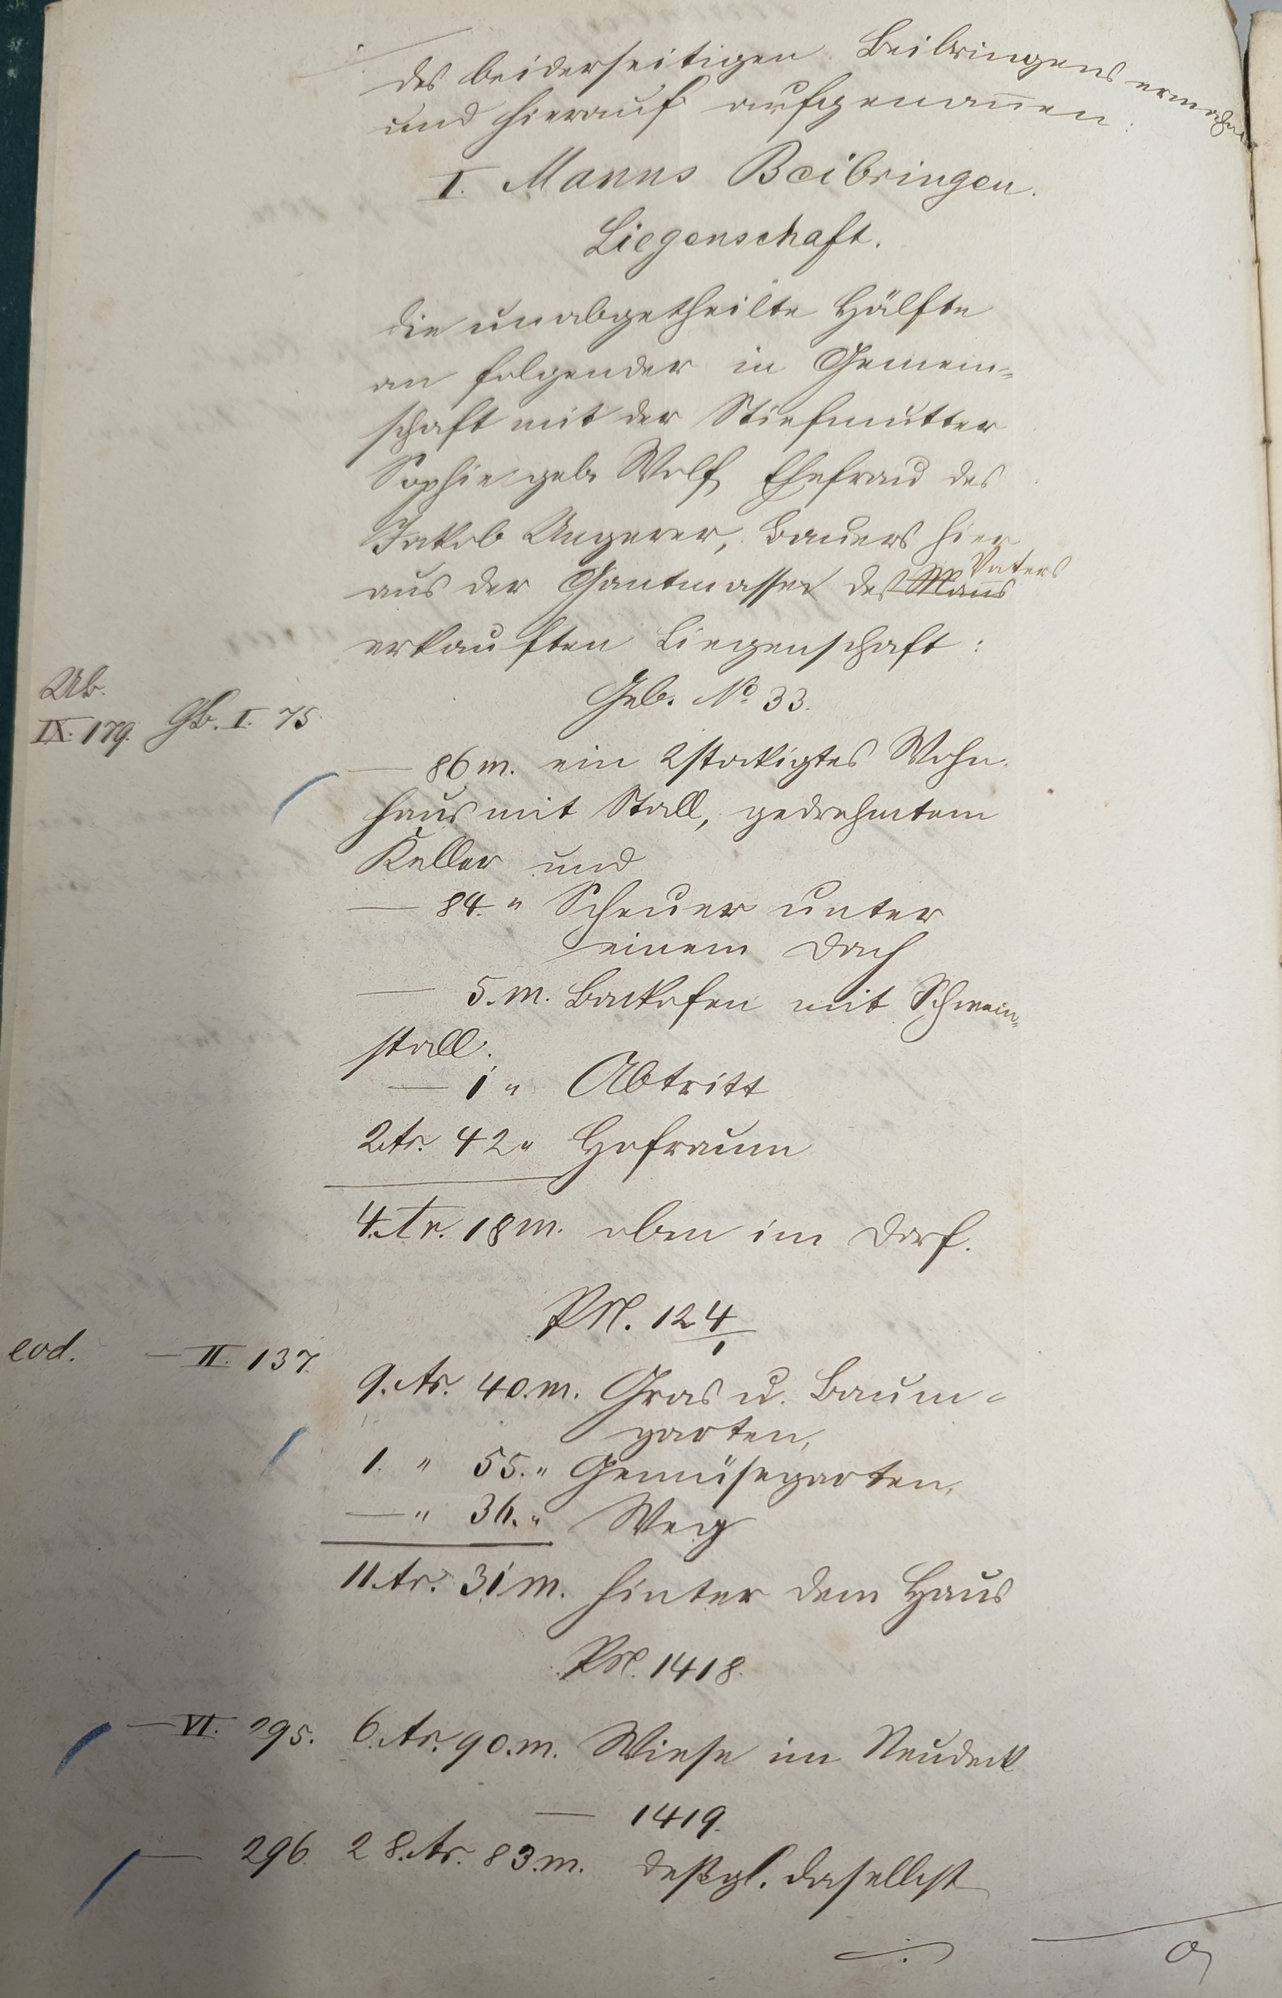 des beiderseitigen Beibringens ermahnt
und hierauf aufgenom̅en:
I. Manns Beibringen.
Liegenschaft.
die unabgetheilte Hälfte
an folgender in Gemein-
schaft mit der Stiefmutter
Sophie geb. Wolf, Ehefrau des
Jakob Ungerer, Bauers hier
aus der Gantmasse des Man̅s Vaters
erkauften Liegenschaft:
Ub.
IX. 179. Gb. I. 75
Geb. No 33.
— 86 m. ein 2stockigtes Wohn-
haus mit Stall, gedrehmtem
Keller und
— 84. " Scheuer unter
einem Dach
— 5. m. Backofen mit Schwein-
stall.
— 1 " Abtritt
2 Ar. 42 " Hofraum
4. Ar. 18 m. oben im Dorf.
PN. 124/1
eod. — II. 137.
9. Ar. 40. m. Gras u. Baum-
garten,
1. " 55. " Gemüsegarten,
— " 36. " Weg
11 Ar. 31 m. hinter dem Haus
PN. 1418.
— VI. 295. 6. Ar. 90. m. Wiese im Neudeck
— 1419.
— 296. 28. Ar. 83. m. deßgl. daselbst